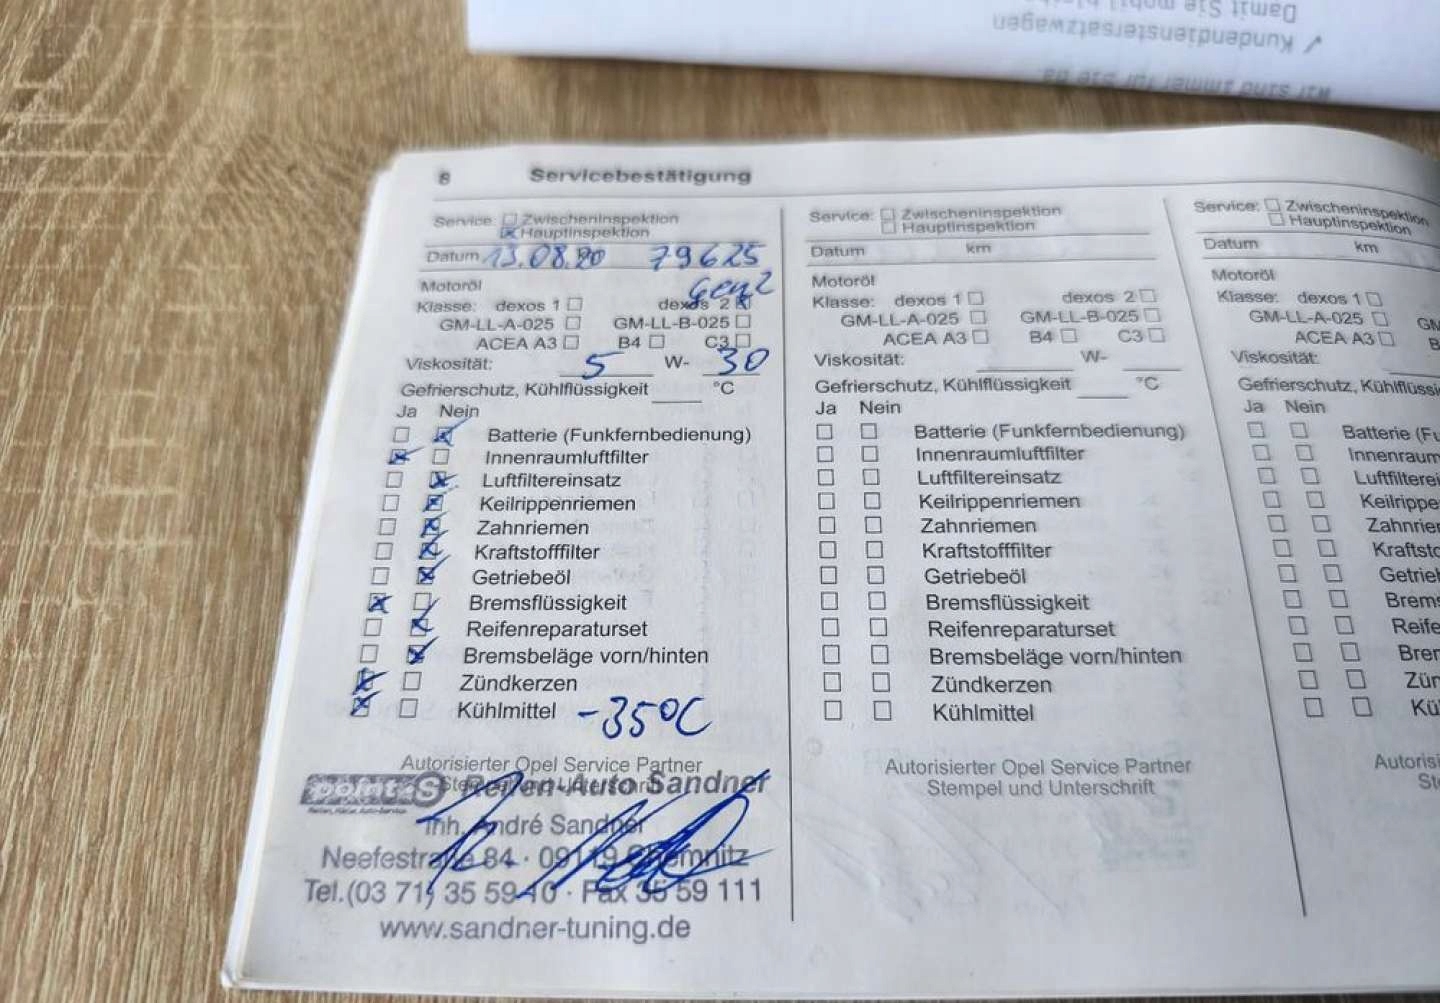 wir sind immer für Sie da.
✓ Kundendienstersatzwagen
Damit Sie mobil
8 Servicebestätigung
Service: Zwischeninspektion
Hauptinspektion
Datum 13.08.20 79625
Motoröl Gen2
Klasse: dexos 1 dexos 2
GM-LL-A-025 GM-LL-B-025
ACEA A3 B4 C3
Viskosität: 5 W- 30
Gefrierschutz, Kühlflüssigkeit °C
Ja Nein
Batterie (Funkfernbedienung)
Innenraumluftfilter
Luftfiltereinsatz
Keilrippenriemen
Zahnriemen
Kraftstofffilter
Getriebeöl
Bremsflüssigkeit
Reifenreparaturset
Bremsbeläge vorn/hinten
Zündkerzen
Kühlmittel -35°C
Autorisierter Opel Service Partner
Stempel und Unterschrift
point S Reifen-Auto Sandner
Inh. André Sandner
Neefestraße 84 · 09119 Chemnitz
Tel.(03 71) 35 59 10 · Fax 35 59 111
www.sandner-tuning.de
Service: Zwischeninspektion
Hauptinspektion
Datum km
Motoröl
Klasse: dexos 1 dexos 2
GM-LL-A-025 GM-LL-B-025
ACEA A3 B4 C3
Viskosität: W-
Gefrierschutz, Kühlflüssigkeit °C
Ja Nein
Batterie (Funkfernbedienung)
Innenraumluftfilter
Luftfiltereinsatz
Keilrippenriemen
Zahnriemen
Kraftstofffilter
Getriebeöl
Bremsflüssigkeit
Reifenreparaturset
Bremsbeläge vorn/hinten
Zündkerzen
Kühlmittel
Autorisierter Opel Service Partner
Stempel und Unterschrift
Service: Zwischeninspektion
Hauptinspektion
Datum km
Motoröl
Klasse: dexos 1
GM-LL-A-025 GM
ACEA A3 B
Viskosität:
Gefrierschutz, Kühlflüssig
Ja Nein
Batterie (Fu
Innenraum
Luftfilterei
Keilrippen
Zahnrie
Kraftsto
Getrieb
Brems
Reife
Bren
Zün
Kü
Autorisi
St